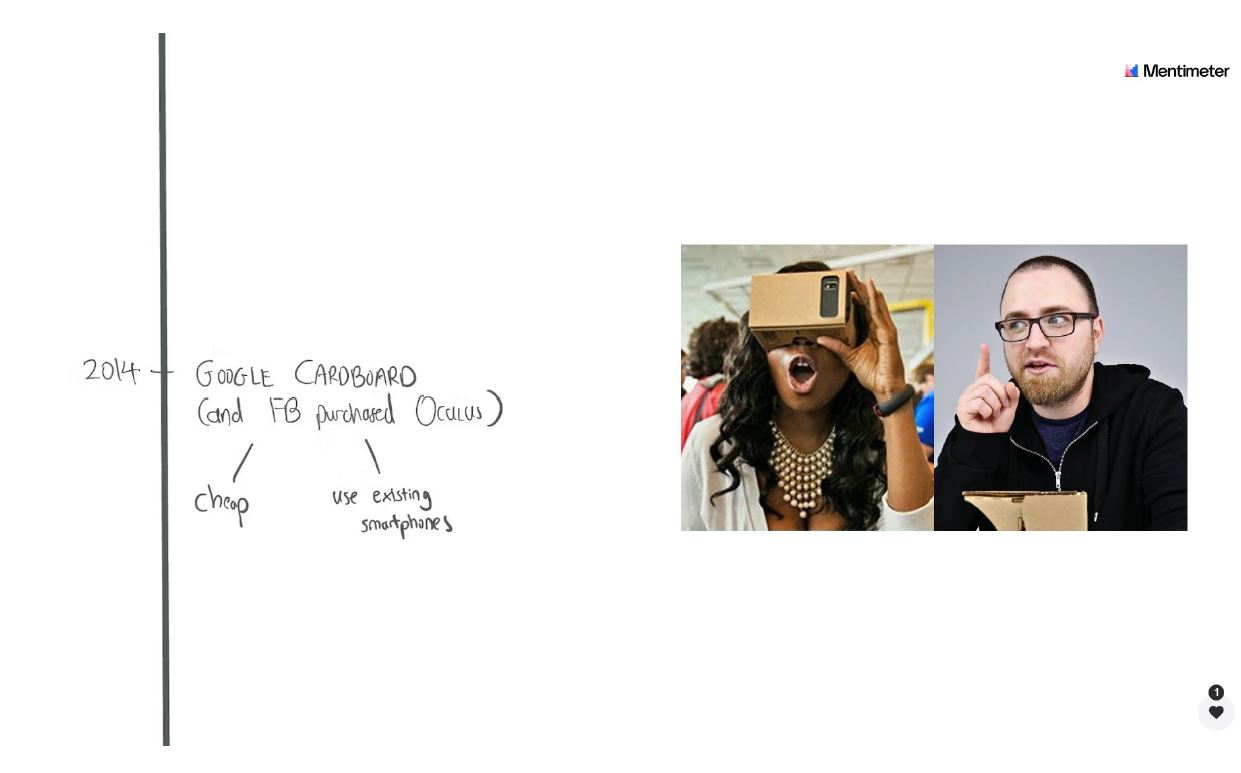 Mentimeter
2014 GOOGLE CARDBOARD
(and FB purchased Oculus)
cheap
use existing
smartphones
1